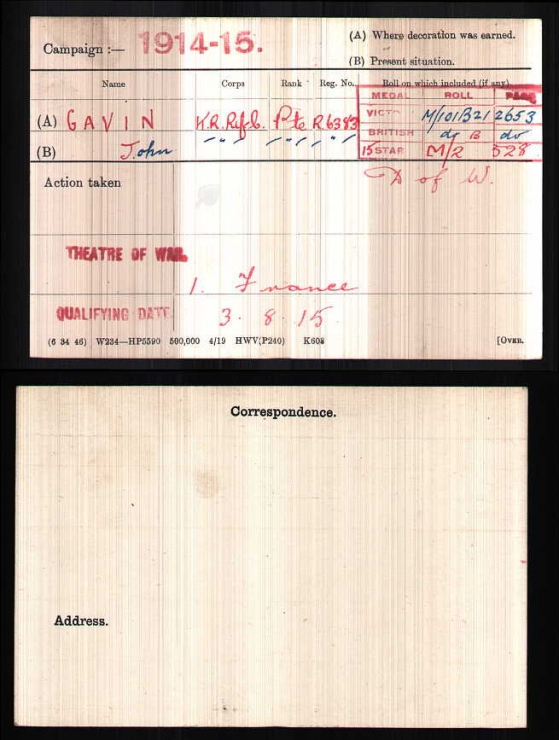 Campaign :— 1914-15.
(A) Where decoration was earned.
(B) Present situation.
Name Corps Rank Reg. No. Roll on which included (if any).
MEDAL ROLL PAGE
(A) GAVIN K.R.Rif.C. Pte R6383 VICTY M/101B21 2653
BRITISH do B do
(B) John " " " " " " 15 STAR M/2 528
Action taken D of W.
THEATRE OF WAR.
1. France
QUALIFYING DATE 3. 8. 15.
(6 34 46) W234—HP5590 500,000 4/19 HWV(P240) K608 [OVER.
Correspondence.
Address.